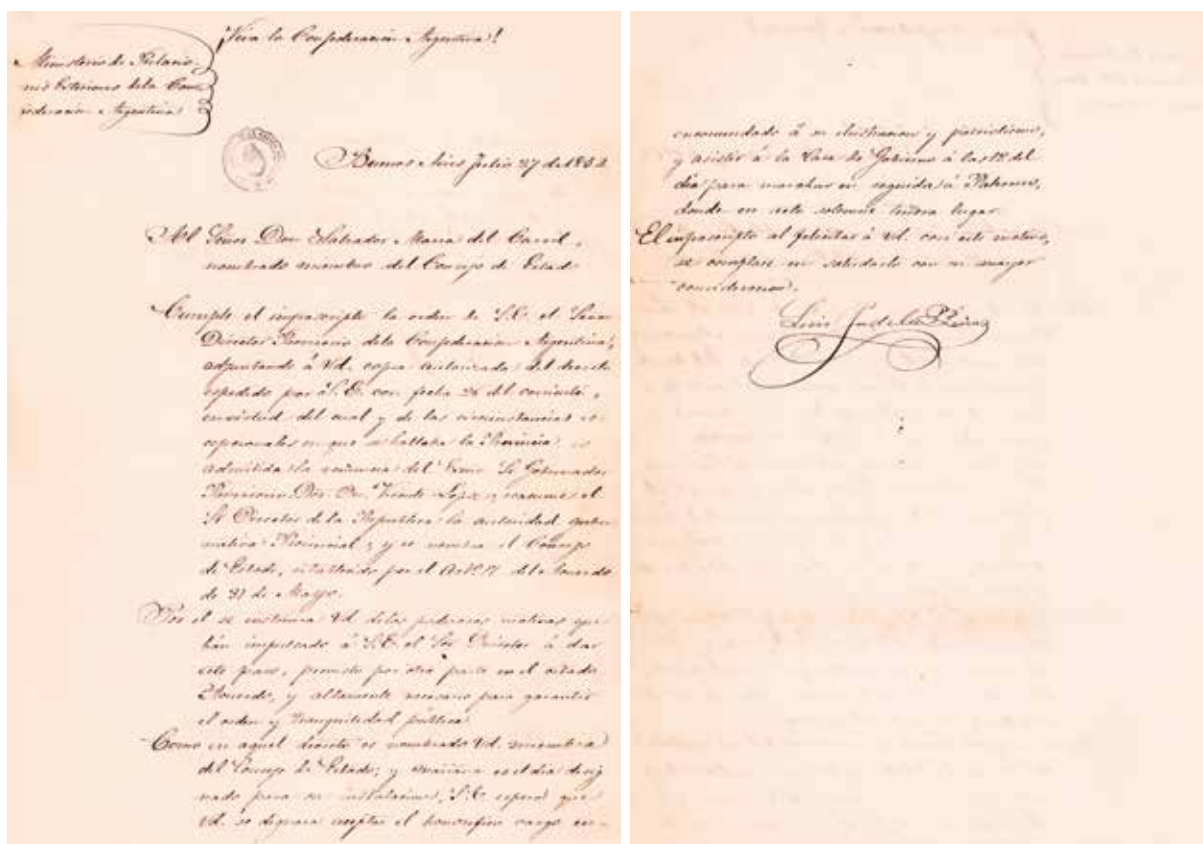 ¡Viva la Confederacion Argentina!
Ministerio de Relacio-
nes Esteriores de la Con-
federacion Argentina
Buenos Aires Julio 27 de 1852
Al Señor Don Salvador Maria del Carril,
nombrado miembro del Consejo de Estado
Cumple el infrascripto la orden de S.E. el Señor
Director Provisorio de la Confederacion Argentina,
adjuntando á Vd. copia autorizada del decreto
espedido por S.E. con fecha 26 del corriente,
en virtud del cual y de las circunstancias es-
cepcionales en que se hallaba la Provincia es
admitida la renuncia del Exmo Sr Gobernador
Provisorio Dor. Dn. Vicente Lopez y reasume el
Sr Director de la Republica la autoridad guber-
nativa Provincial; y se nombra el Consejo
de Estado, establecido por el Artº 17 del Acuerdo
de 31 de Mayo.
Por él se instruirá Vd. de los poderosos motivos que
han impulsado á S.E. el Sor Director á dar
este paso, previsto por otra parte en el citado
Acuerdo, y altamente necesario para garantir
el orden y tranquilidad publica.
Como en aquel decreto es nombrado Vd. miembro
del Consejo de Estado, y mañana es el dia desig-
nado para su instalacion, S.E. espera que
Vd. se dignará aceptar el honorifico cargo en-
encomendado á su ilustracion y patriotismo,
y asistir á la Casa de Gobierno á las 12 del
dia para marchar en seguida á Palermo,
donde en acto solemne tendrá lugar.
El infrascripto al felicitar á Vd. con este motivo,
se complace en saludarlo con su mayor
consideracion.
Luis José de la Peña